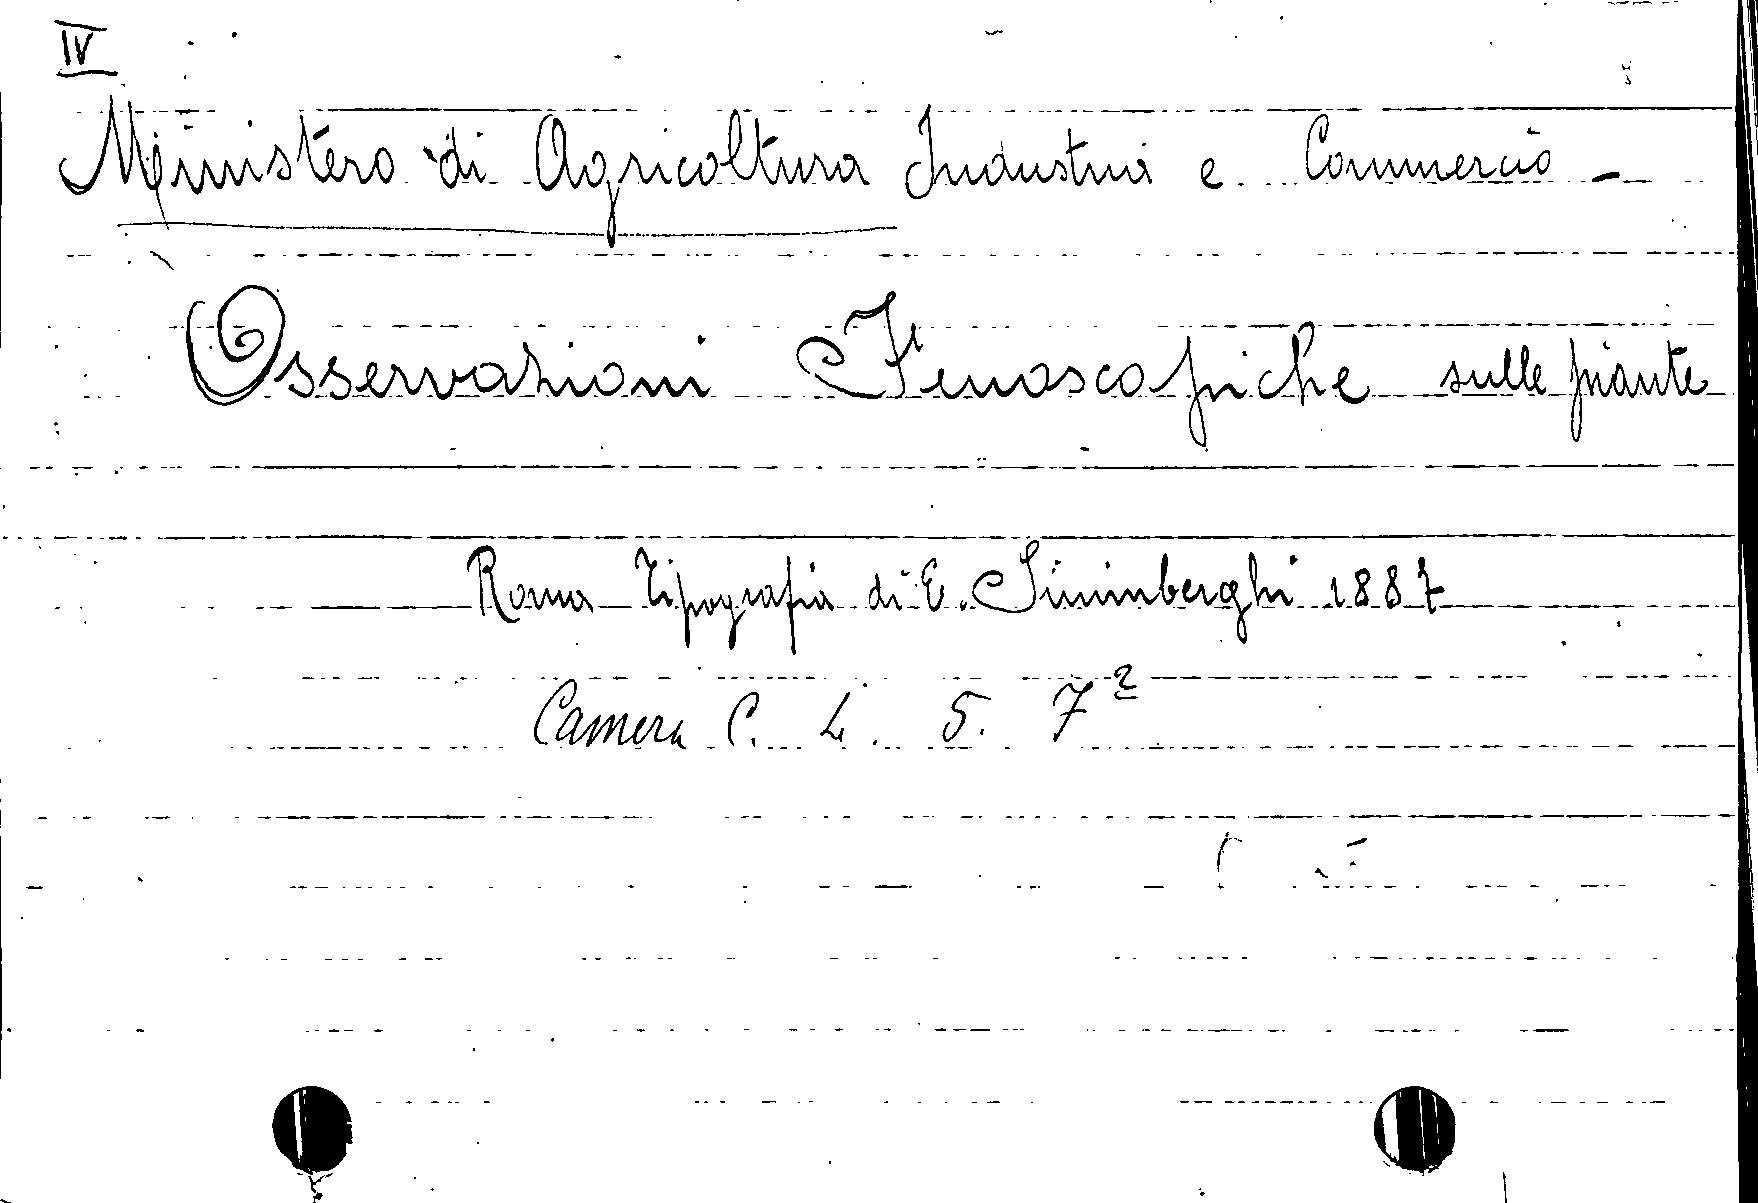 IV
Ministero di Agricoltura Industria e Commercio -
Osservazioni Fenoscopiche sulle piante
Roma Tipografia di E. Sinimberghi 1887
Camera C. L. 5. 7ª